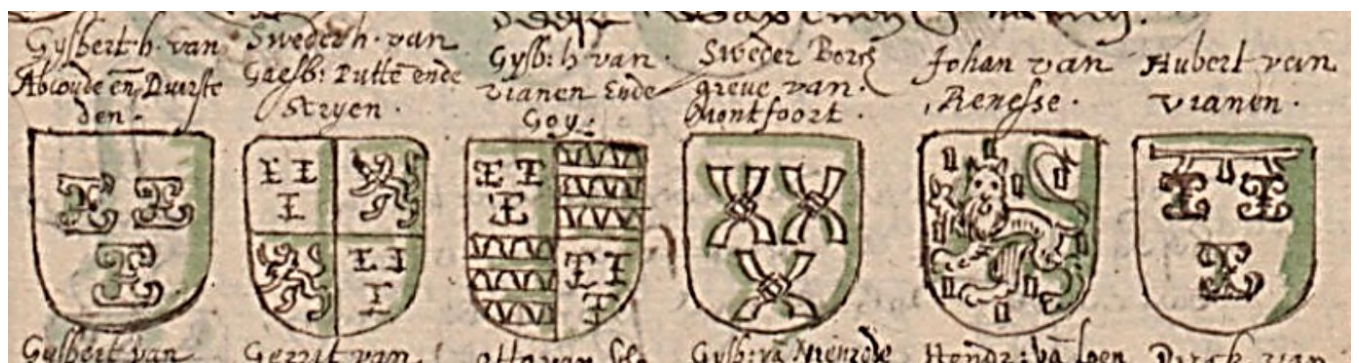 Gÿsbert h. van
Abcoude eñ Duerste
den.
Sweder h. van
Gaesb: Putte ende
Stryen.
Gÿsb: h van
Vianen Ende
Goy:
Sweder Borg
greve van.
Montfoort.
Johan van
Renesse.
Hubert van
Vianen.
Gÿsbert van
Gerrit van
Otto van
Gÿsb: vā Nienrode
Hendr: vā Loen